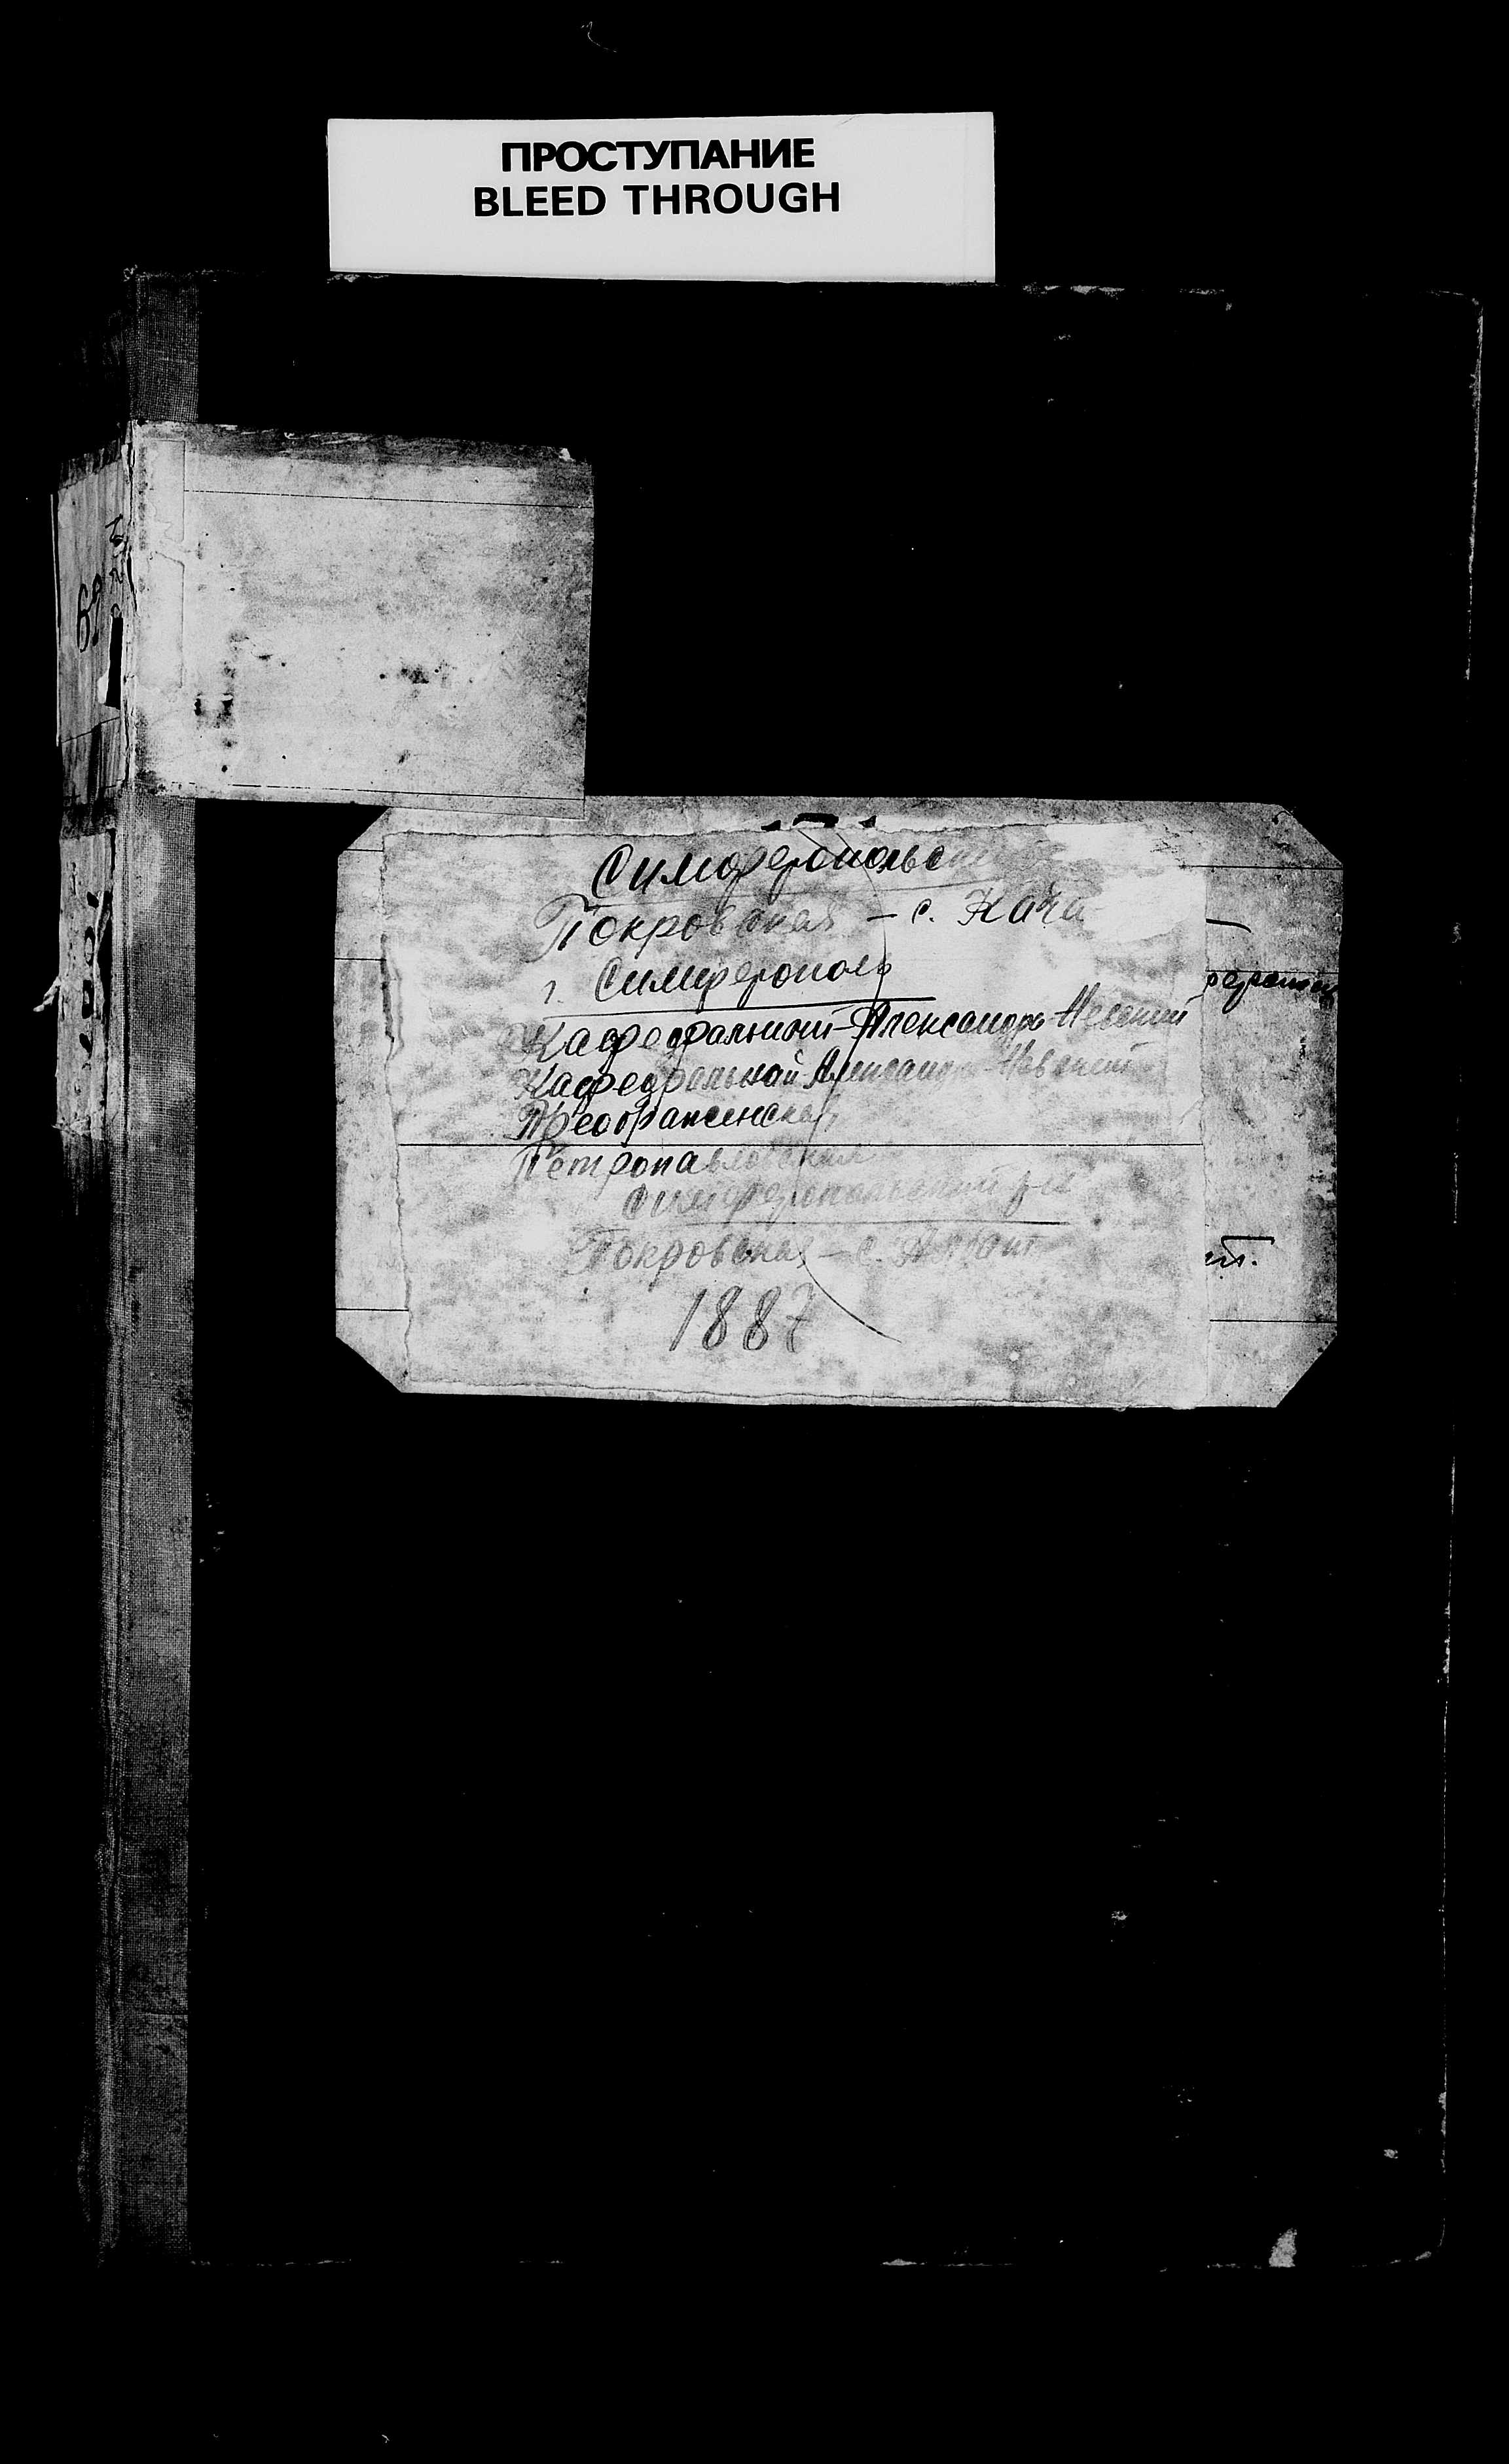 ПРОСТУПАНИЕ
BLEED THROUGH
Симферопольс
Покровская – с. Кача
г. Симферополь
Кафедральный Александро-Невский
Кафедральной Александро-Невский
Преображенская
Петропавловская
Симферопольский
Покровская – с.
1887